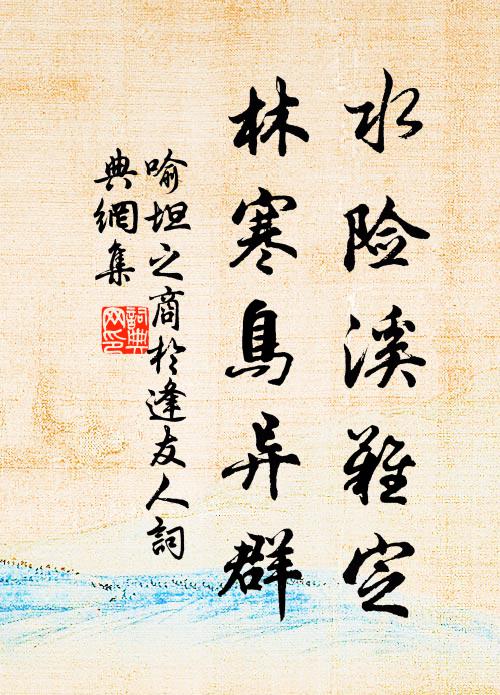 水险溪难定
林寒鸟异群
喻坦之商於逢友人詞
典網集
詞典
网印